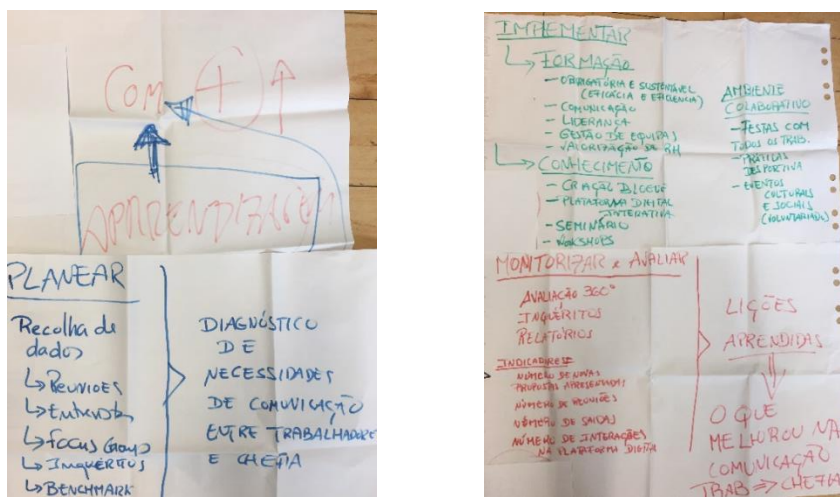 COM + ↑
APARENDIZAGEM
PLANEAR
Recolha de
dados
↳ REUNIÕES
↳ Entrevistas
↳ FOCUS GROUP
↳ INQUÉRITOS
↳ BENCHMARK
DIAGNÓSTICO
DE
NECESSIDADES
DE COMUNICAÇÃO
ENTRE TRABALHADORES
E CHEFIA
IMPLEMENTAR
↳ FORMAÇÃO
- OBRIGATÓRIA E SUSTENTÁVEL
(EFICÁCIA E EFICIENCIA)
- COMUNICAÇÃO
- LIDERANÇA
- GESTÃO DE EQUIPAS
- VALORIZAÇÃO DE RH
↳ CONHECIMENTO
- CRIAÇÃO BLOGUE
- PLATAFORMA DIGITAL
INTERATIVA
- SEMINÁRIO
- WORKSHOPS
AMBIENTE
COLABORATIVO
- FESTAS COM
TODOS OS TRAB.
- PRÁTICAS
DESPORTIVA
- EVENTOS
CULTURAIS
E SOCIAIS
(VOLUNTARIADO)
MONITORIZAR e AVALIAR
AVALIAÇÃO 360°
INQUÉRITOS
RELATÓRIOS
INDICADORES
NÚMERO DE NOVAS
PROPOSTAS APRESENTADAS
NÚMERO DE REUNIÕES
NÚMERO DE SAÍDAS
NÚMERO DE INTERAÇÕES
NA PLATAFORMA DIGITAL
LIÇÕES
APRENDIDAS
O QUE
MELHOROU NA
COMUNICAÇÃO
TRAB ⇒ CHEFIA